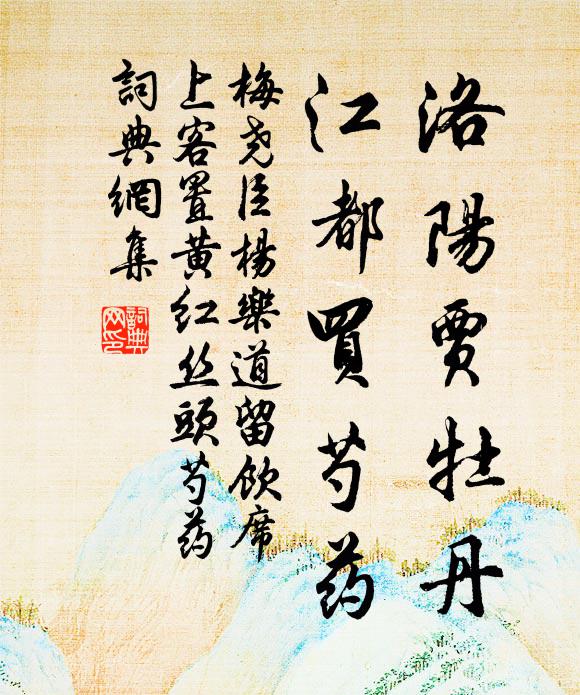 洛陽賈牡丹
江都買芍药
梅尧臣楊樂道留飲席
上客置黄红丝頭芍药
詞典網集
詞典
网印